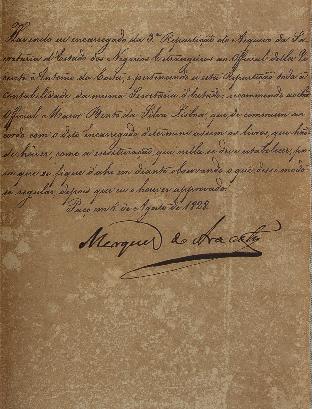 Havendo eu encarregado da 3.ª Repartição do Arquivo da Se
cretaria d'Estado dos Negocios Estrangeiros ao Official della Vi
cente Antonio da Costa, e pertencendo a esta Repartição toda a
contabilidade da mesma Secretaria d'Estado: recommendo ao
Official Maior Bento da Silva Lisboa, que de commum ac
cordo com o dito encarregado determinem os livros, que hão
de haver, como a escrituração, que nella se deve estabelecer, pa
ra que se fique d'ora em diante observando o que desse modo
se regular depois que eu o houver approvado.
Paço em de Agosto de 1828
Marquez de Aracaty